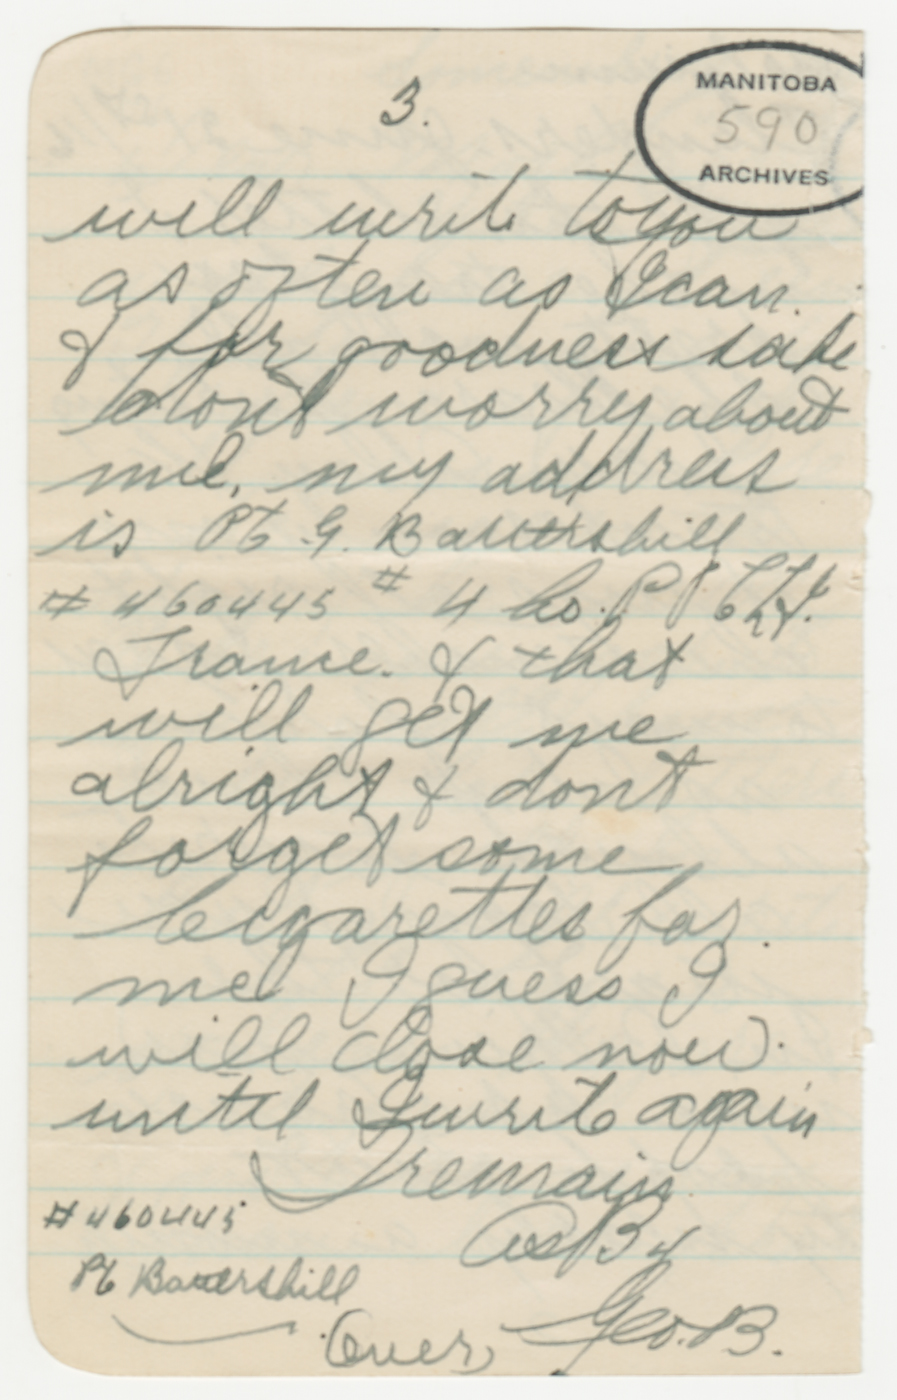 3.
MANITOBA
590
ARCHIVES
will write to you
as often as I can.
& for goodness sake
dont worry about
me, my address
is Pt. G. Battershill
# 460445 # 4 Co. P.P.C.L.I.
France. & that
will get me
alright & dont
forget some
Cigarettes for
me I guess I
will close now.
until I write again
I remain
#460445
Pt Battershill
Geo. B.
Over,